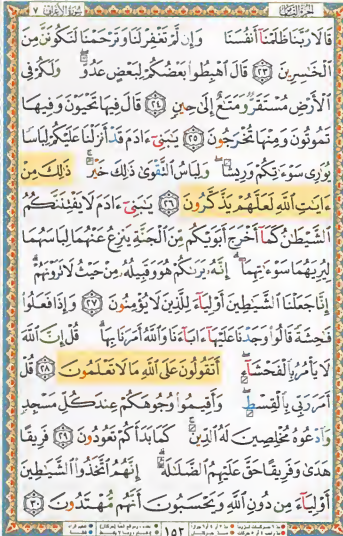 الجزء الثامن سورة الأعراف ٧
قَالَا رَبَّنَا ظَلَمْنَا أَنفُسَنَا وَإِن لَّمْ تَغْفِرْ لَنَا وَتَرْحَمْنَا لَنَكُونَنَّ مِنَ
الْخَٰسِرِينَ ٢٣ قَالَ اهْبِطُوا بَعْضُكُمْ لِبَعْضٍ عَدُوٌّ وَلَكُمْ فِي
الْأَرْضِ مُسْتَقَرٌّ وَمَتَٰعٌ إِلَىٰ حِينٍ ٢٤ قَالَ فِيهَا تَحْيَوْنَ وَفِيهَا
تَمُوتُونَ وَمِنْهَا تُخْرَجُونَ ٢٥ يَٰبَنِي ءَادَمَ قَدْ أَنزَلْنَا عَلَيْكُمْ لِبَاسًا
يُوَٰرِي سَوْءَٰتِكُمْ وَرِيشًا وَلِبَاسُ التَّقْوَىٰ ذَٰلِكَ خَيْرٌ ذَٰلِكَ مِنْ
ءَايَٰتِ اللَّهِ لَعَلَّهُمْ يَذَّكَّرُونَ ٢٦ يَٰبَنِي ءَادَمَ لَا يَفْتِنَنَّكُمُ
الشَّيْطَٰنُ كَمَا أَخْرَجَ أَبَوَيْكُم مِّنَ الْجَنَّةِ يَنزِعُ عَنْهُمَا لِبَاسَهُمَا
لِيُرِيَهُمَا سَوْءَٰتِهِمَا إِنَّهُ يَرَىٰكُمْ هُوَ وَقَبِيلُهُ مِنْ حَيْثُ لَا تَرَوْنَهُمْ
إِنَّا جَعَلْنَا الشَّيَٰطِينَ أَوْلِيَاءَ لِلَّذِينَ لَا يُؤْمِنُونَ ٢٧ وَإِذَا فَعَلُوا
فَٰحِشَةً قَالُوا وَجَدْنَا عَلَيْهَا ءَابَاءَنَا وَاللَّهُ أَمَرَنَا بِهَا قُلْ إِنَّ اللَّهَ
لَا يَأْمُرُ بِالْفَحْشَاءِ أَتَقُولُونَ عَلَى اللَّهِ مَا لَا تَعْلَمُونَ ٢٨ قُلْ
أَمَرَ رَبِّي بِالْقِسْطِ وَأَقِيمُوا وُجُوهَكُمْ عِندَ كُلِّ مَسْجِدٍ
وَادْعُوهُ مُخْلِصِينَ لَهُ الدِّينَ كَمَا بَدَأَكُمْ تَعُودُونَ ٢٩ فَرِيقًا
هَدَىٰ وَفَرِيقًا حَقَّ عَلَيْهِمُ الضَّلَٰلَةُ إِنَّهُمُ اتَّخَذُوا الشَّيَٰطِينَ
أَوْلِيَاءَ مِن دُونِ اللَّهِ وَيَحْسَبُونَ أَنَّهُم مُّهْتَدُونَ ٣٠
١٥٣